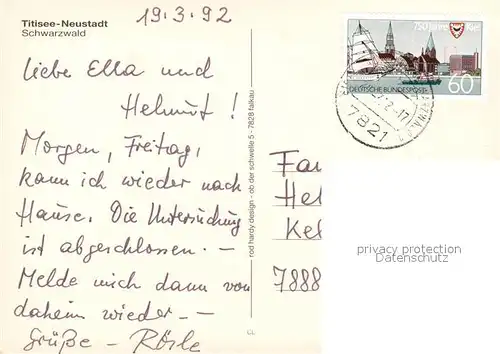 Titisee-Neustadt
Schwarzwald
19.3.92
Liebe Ella und
Helmut!
Morgen, Freitag,
kann ich wieder nach
Hause. Die Untersuchung
ist abgeschlossen. –
Melde mich dann von
daheim wieder. –
Grüße – Rösle
rod hardy design - ob der schwelle 5 - 7828 falkau
CL
750 Jahre Kiel
DEUTSCHE BUNDESPOST
60
7821
Fam
Hel
Kel
7888
privacy protection
Datenschutz